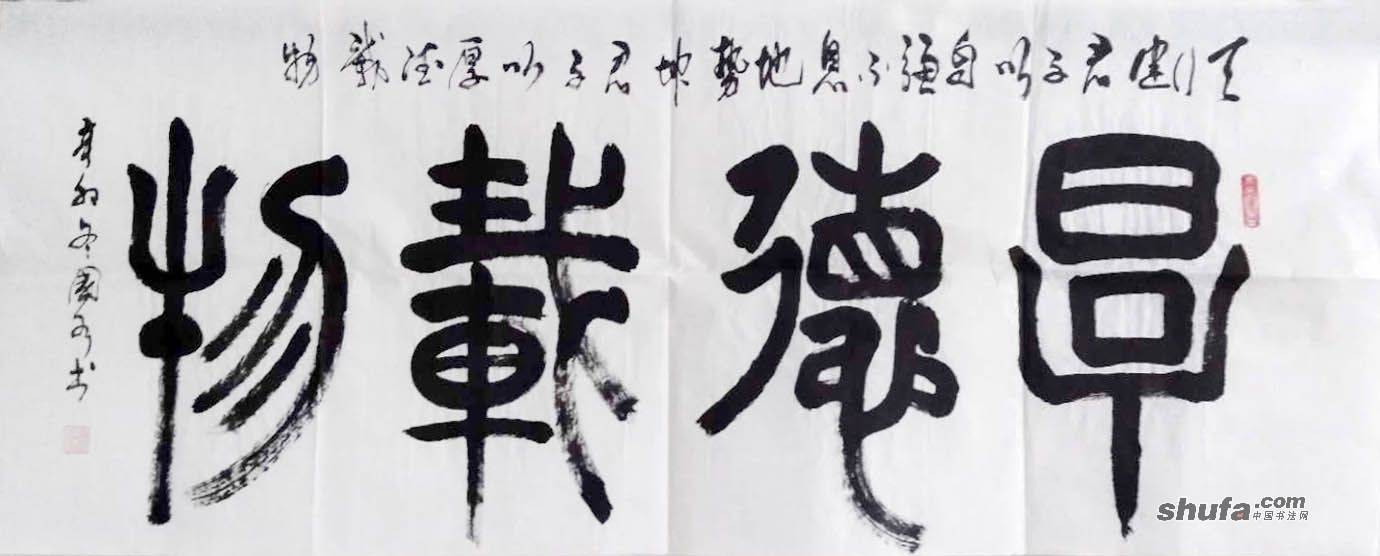 天行健君子以自强不息地势坤君子以厚德载物
厚德載物
冬國书
shufa.com
中国书法网